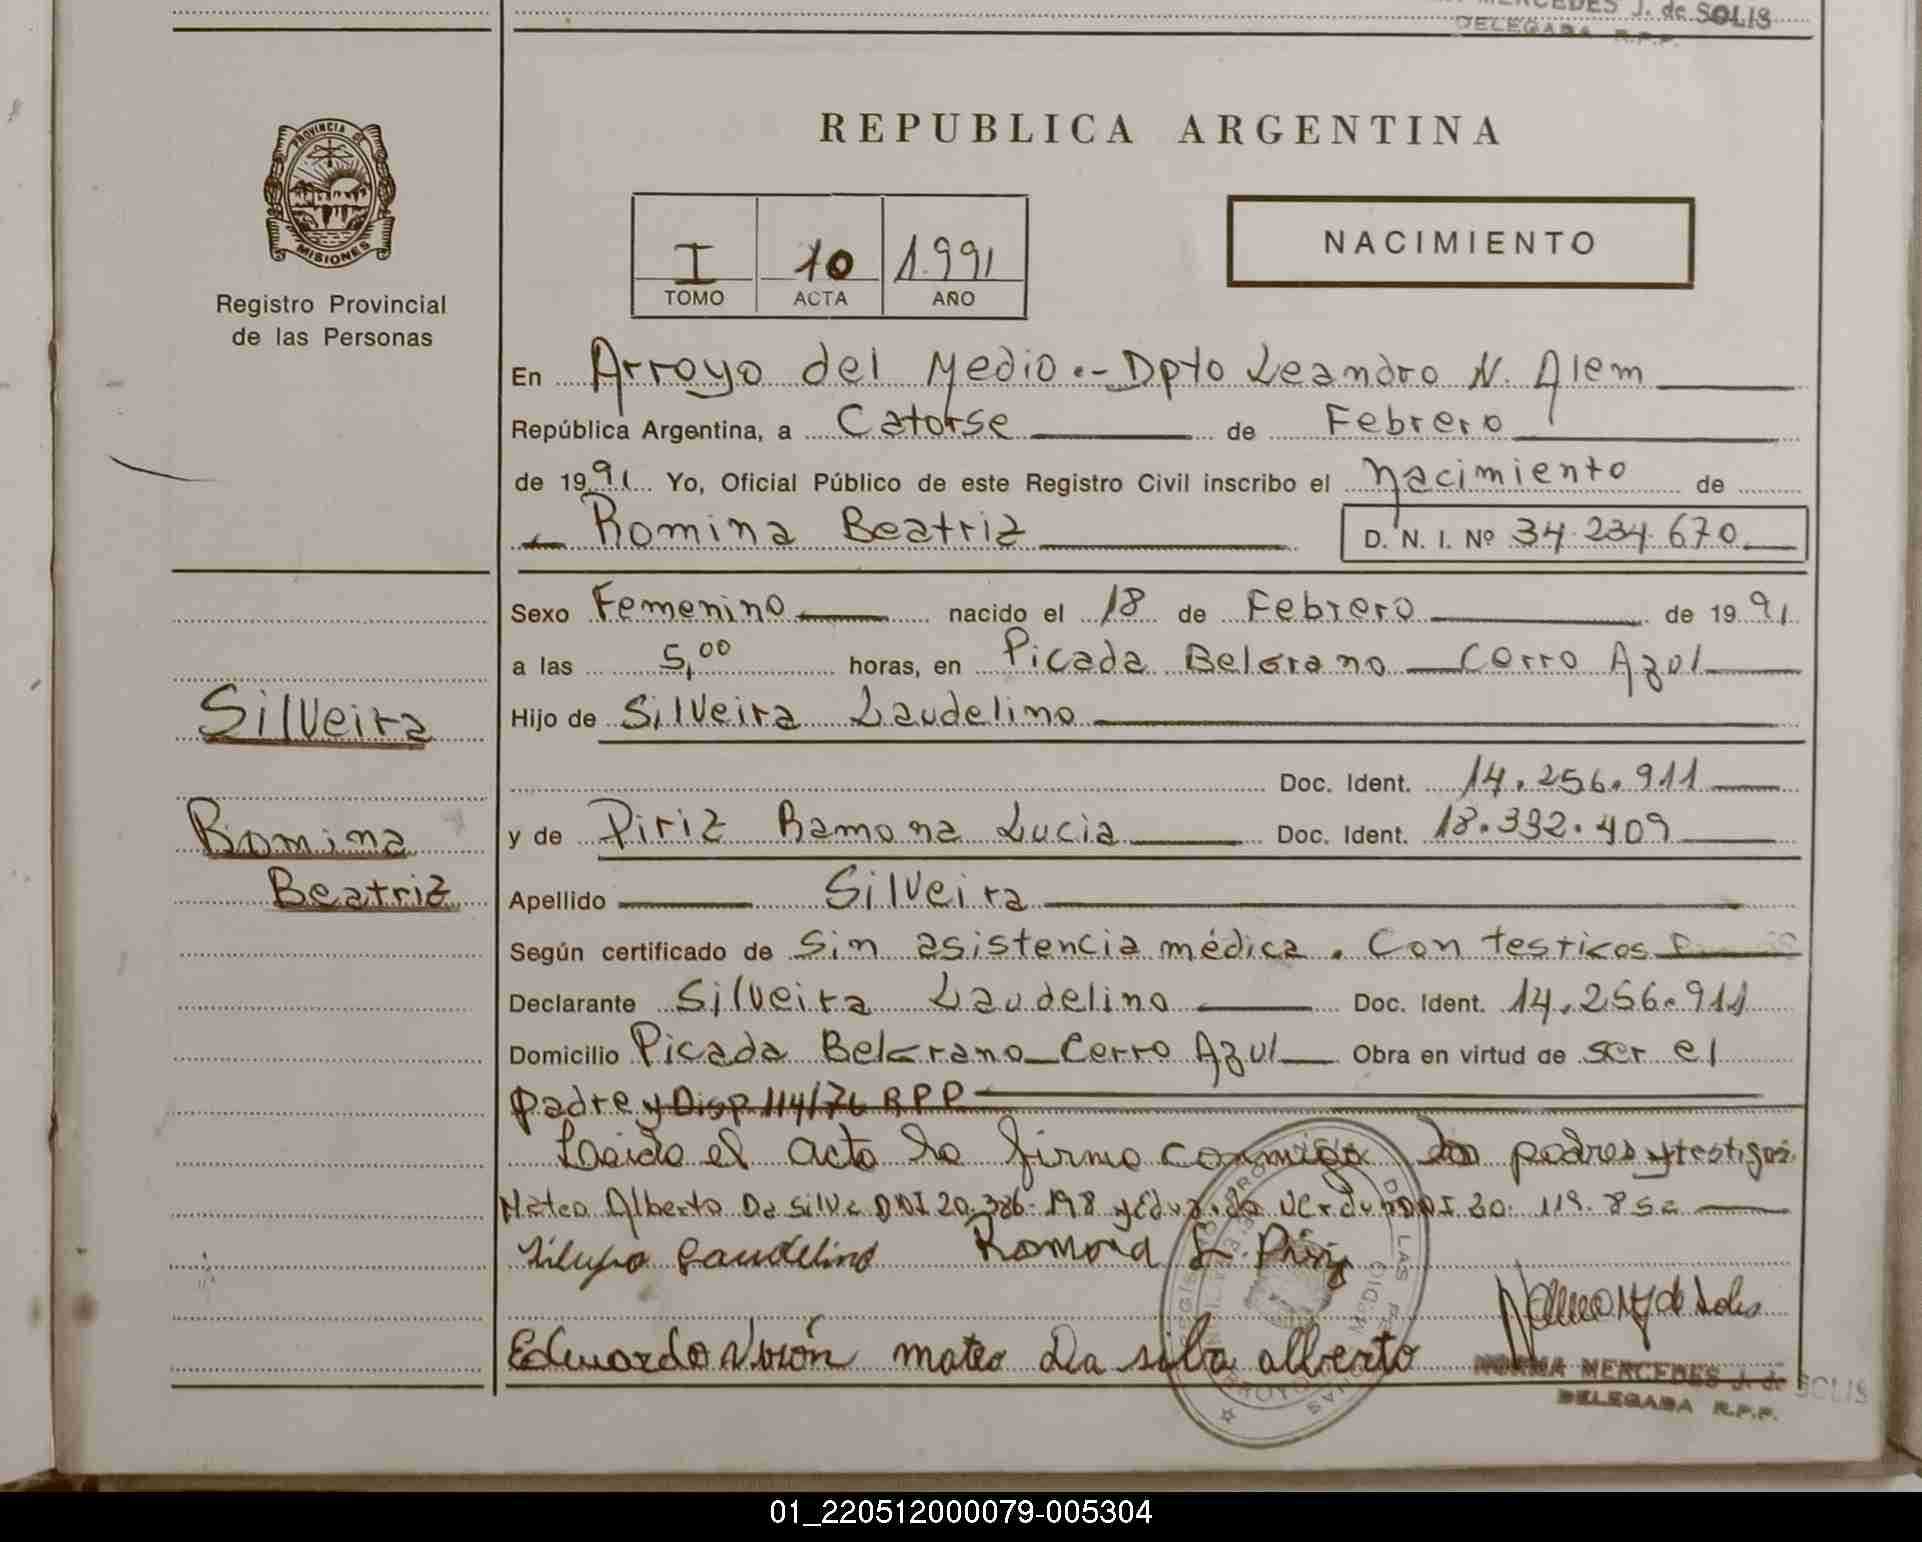 MERCEDES J. de SOLIS
DELEGADA R.P.P.
PROVINCIA DE
MISIONES
Registro Provincial
de las Personas
REPUBLICA ARGENTINA
I 10 1.991
TOMO ACTA AÑO
NACIMIENTO
En Arroyo del Medio.- Dpto Leandro N. Alem
República Argentina, a Catorse de Febrero
de 1991 Yo, Oficial Público de este Registro Civil inscribo el nacimiento de
Romina Beatriz D. N. I. Nº 34.234.670
Sexo Femenino nacido el 18 de Febrero de 1991
a las 5,00 horas, en Picada Belgrano Cerro Azul
Silveira
Hijo de Silveira Laudelino
Doc. Ident. 14.256.911
Romina
y de Piriz Ramona Lucia Doc. Ident. 18.332.409
Beatriz
Apellido Silveira
Según certificado de Sin asistencia médica. Con testigos
Declarante Silveira Laudelino Doc. Ident. 14.256.911
Domicilio Picada Belgrano Cerro Azul Obra en virtud de ser el
padre y Disp 114/76 RPP
Leido el acto lo firma conmigo los padres y testigos
Mateo Alberto Da Silva DNI 20.386.198 y Eduardo Verdun DNI 30.119.852
Laudelino Ramona L. Piriz
Eduardo mateo Da silva alberto
NORMA MERCEDES J. de SOLIS
DELEGADA R.P.P.
01_220512000079-005304